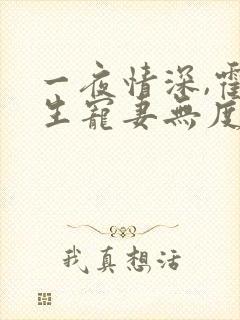 一夜情深,霍
生寵妻無度
我真想活